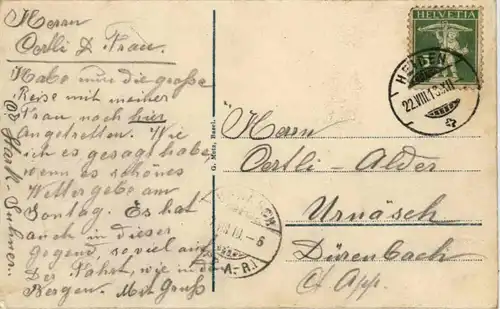 Herrn
Oertli & Frau.
Habe nun die große
Reise mit meiner
Frau nach hier
angetretten. Wie
ich es gesagt habe
wenn es schönes
Wetter gebe am
Sontag. Es hat
auch in dieser
gegend, so viel auf
Der Fahrt, wie in den
Bergen. Mit Gruß
G. Metz, Basel.
HELVETIA
5
HEIDEN
22.VIII.13.XII
Herrn
Oertli-Alder
Urnäsch
Dürenbach
Ct. App.